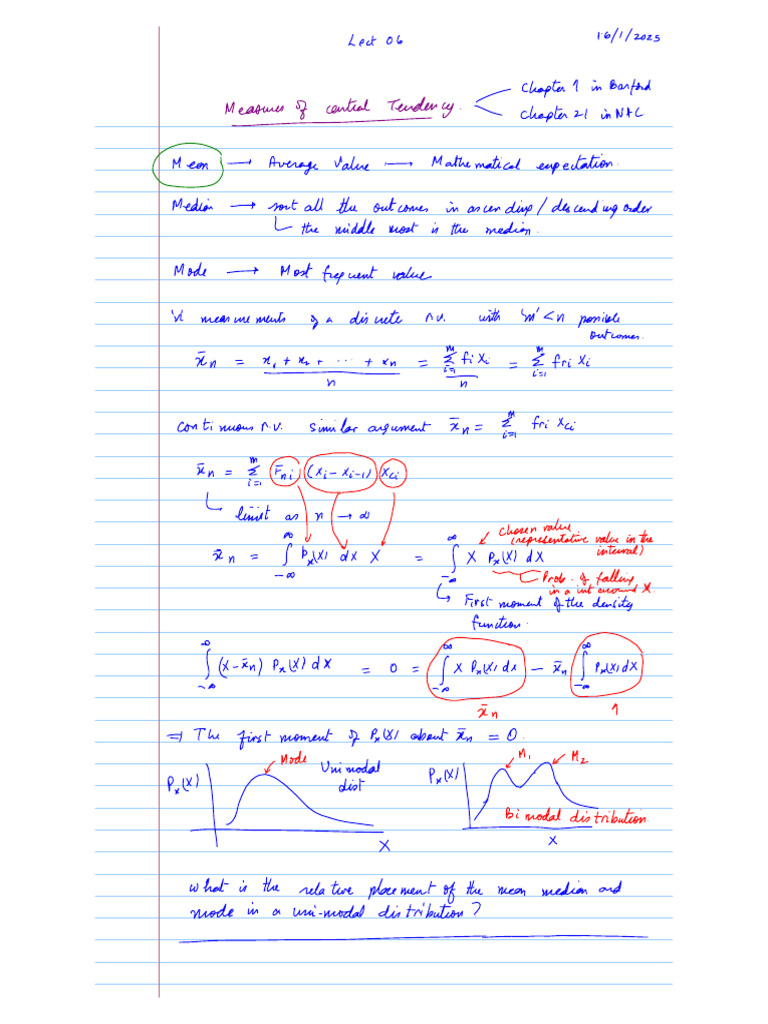 Lect 06
16/1/2025
Measures of central Tendency.
Chapter 1 in Barford
Chapter 21 in N&C
Mean → Average Value → Mathematical expectation.
Median → sort all the outcomes in ascending / descending order
↳ the middle most is the median.
Mode → Most frequent value
'n' measurements of a discrete r.v. with 'm' < n possible
outcomes.
x̄n = (x₁ + x₂ + ... + xn)/n = (Σ_{i=1}^{m} fi Xi)/n = Σ_{i=1}^{m} fri Xi
continuous r.v. similar argument x̄n = Σ_{i=1}^{m} fri Xci
x̄n = Σ_{i=1}^{m} F̄ni (Xi - Xi-1) Xci
↳ limit as n → ∞
Chosen value
(representative value in the
interval)
x̄n = ∫_{-∞}^{∞} Px(X) dX X = ∫_{-∞}^{∞} X Px(X) dX
Prob. of falling
in a int around X.
↳ First moment of the density
function.
∫_{-∞}^{∞} (X - x̄n) Px(X) dX = 0 = ∫_{-∞}^{∞} X Px(X) dX - x̄n ∫_{-∞}^{∞} Px(X) dX
x̄n
1
⇒ The first moment of Px(X) about x̄n = 0.
Px(X)
Mode
Unimodal
dist
X
Px(X)
M₁
M₂
Bimodal distribution
X
what is the relative placement of the mean median and
mode in a uni-modal distribution?